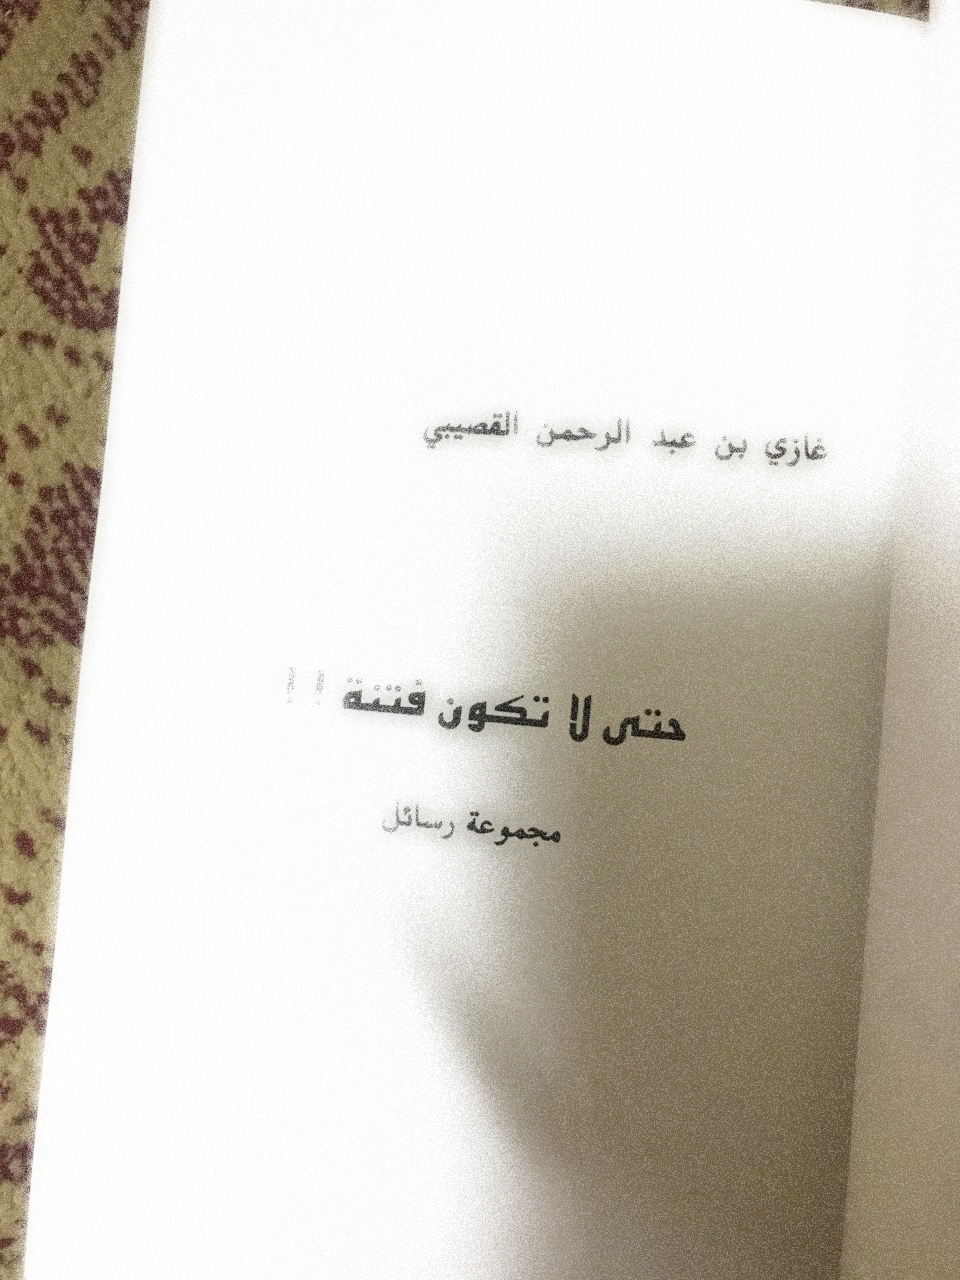 غازي بن عبد الرحمن القصيبي
حتى لا تكون فتنة ! !
مجموعة رسائل